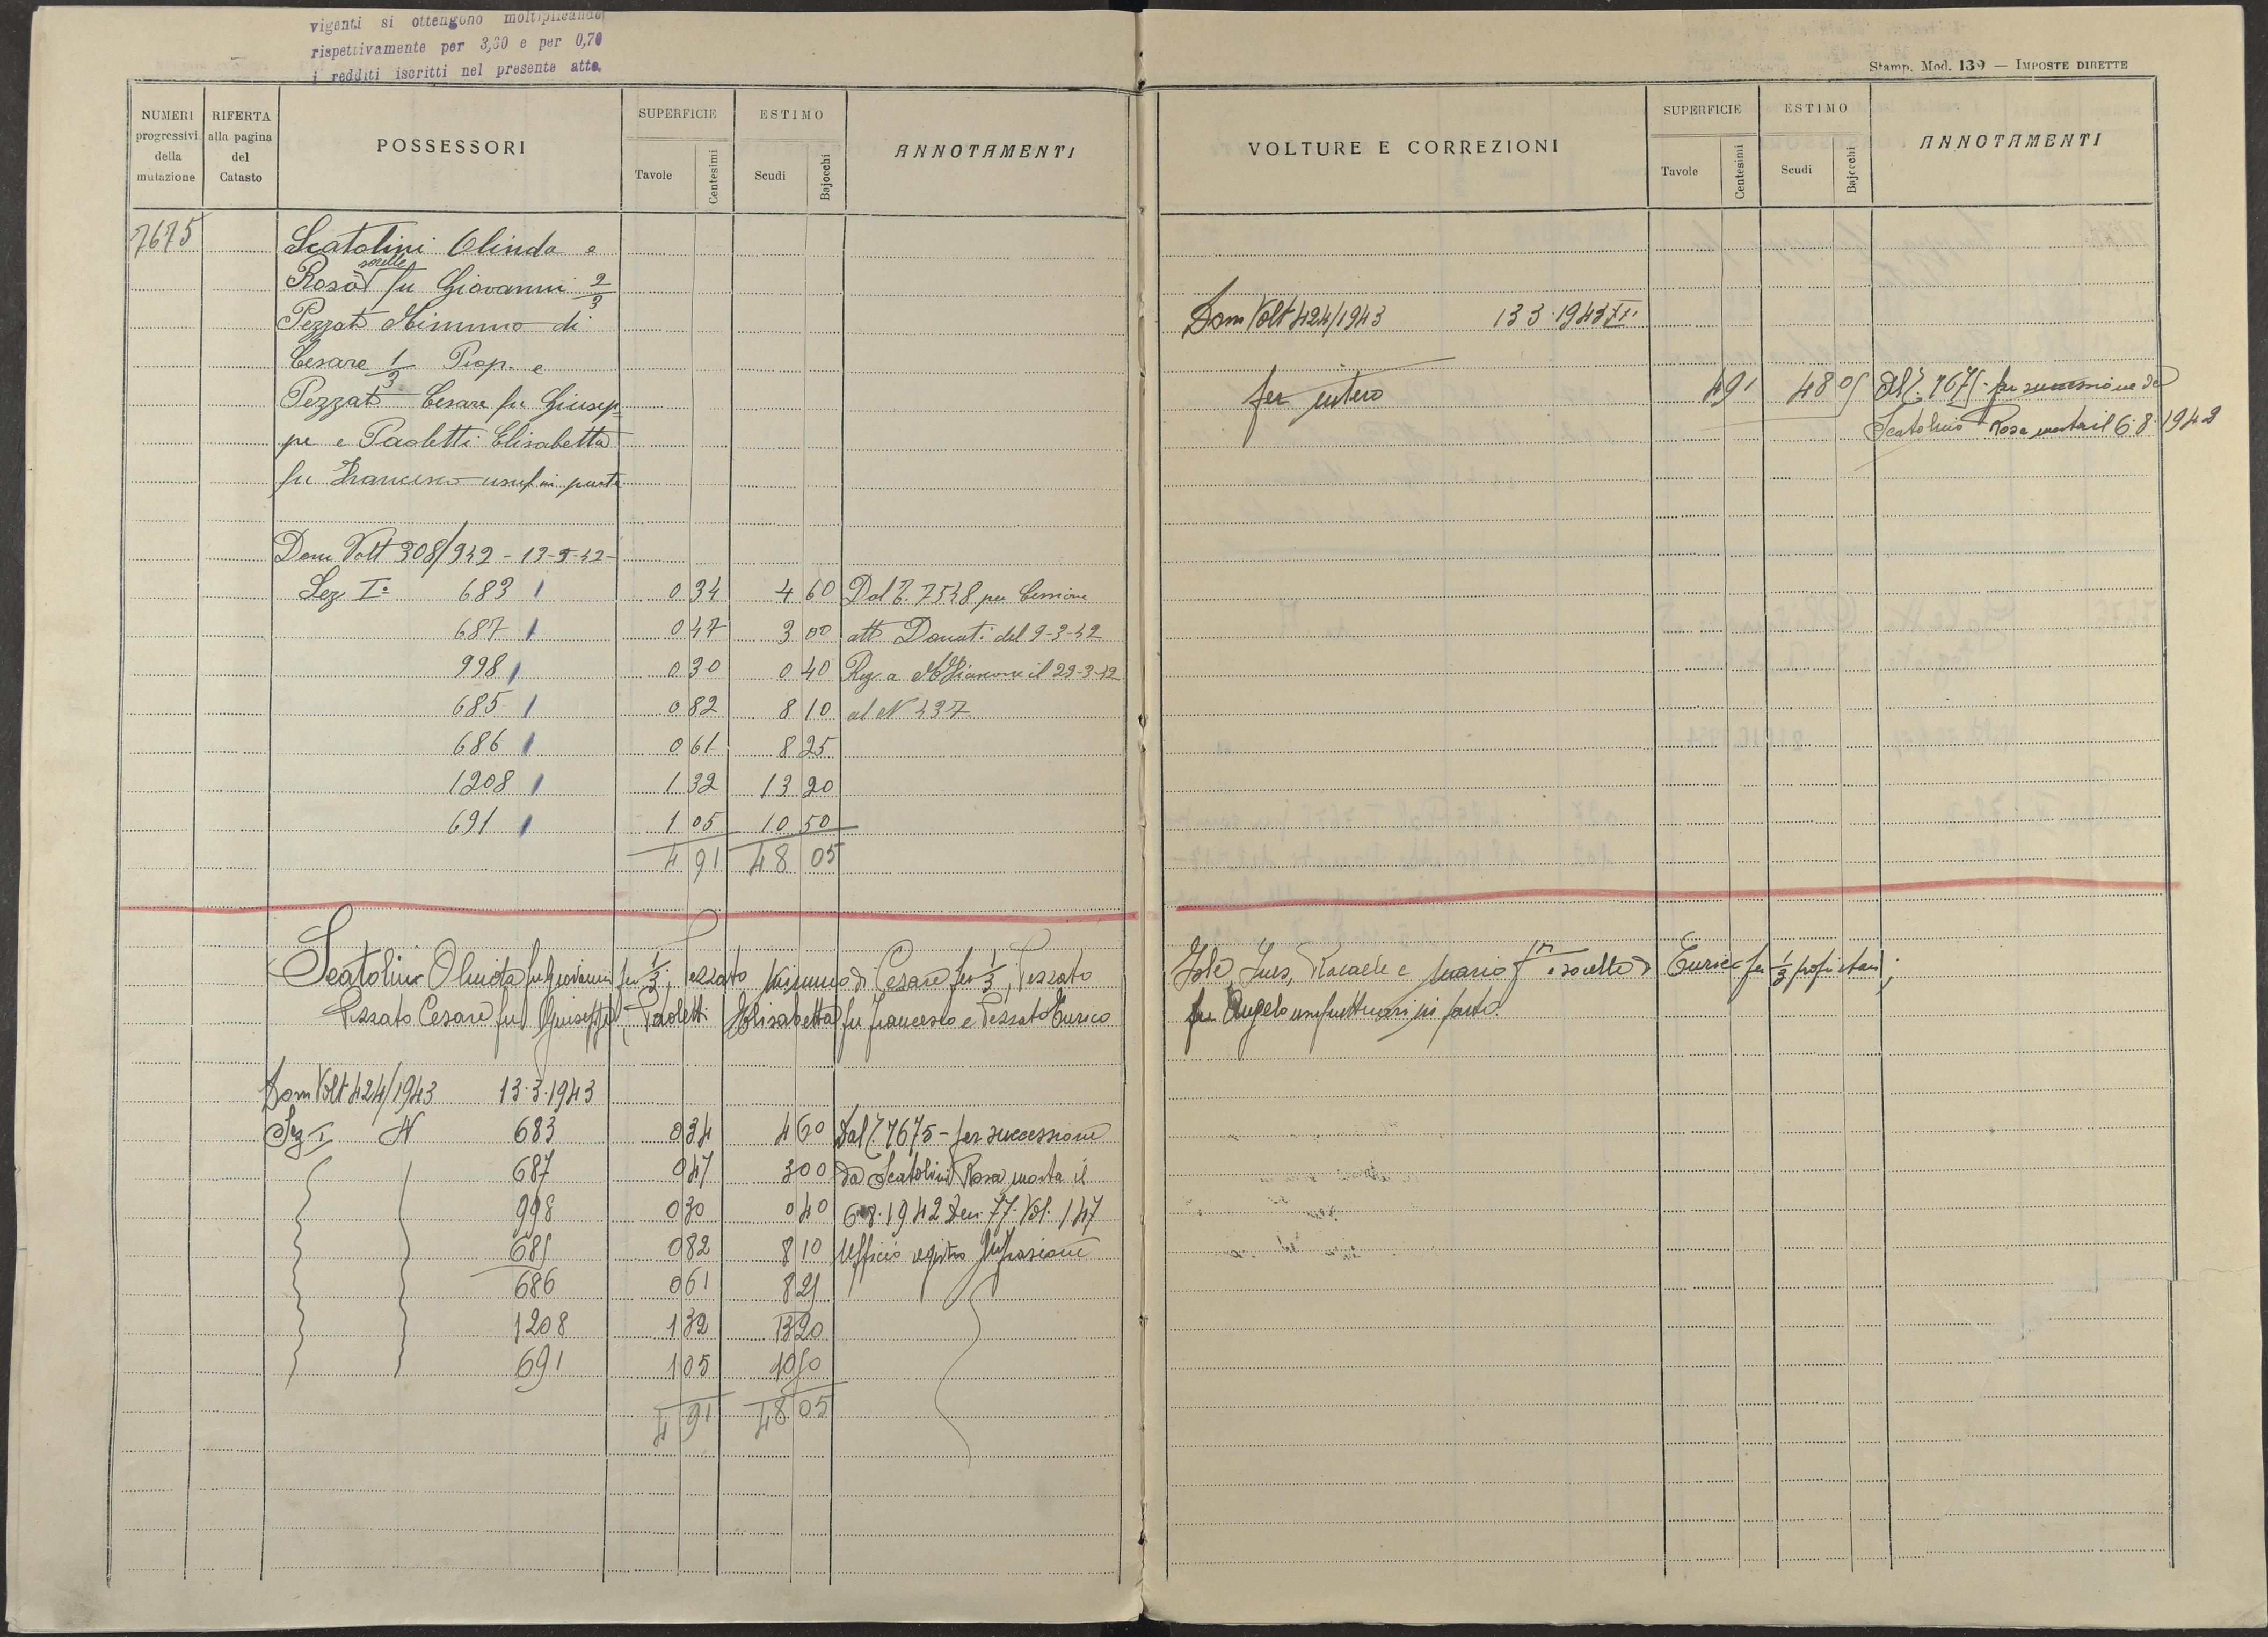 vigenti si ottengono moltiplicando
rispettivamente per 3,60 e per 0,70
i redditi iscritti nel presente atto.
Stamp. Mod. 139 — IMPOSTE DIRETTE
NUMERI progressivi della mutazione
RIFERTA alla pagina del Catasto
POSSESSORI
SUPERFICIE
Tavole
Centesimi
ESTIMO
Scudi
Bajocchi
ANNOTAMENTI
7675
Scatolini Olinda e
Rosa sorelle fu Giovanni 2/3
Pezzato Mimmo di
Cesare 1/3 Prop. e
Pezzato Cesare fu Giusep
pe e Paoletti Elisabetta
fu Francesco usuf in parte
Dom Volt 308/942 - 13-5-42-
Sez Iª 683 0 34 4 60 Dal T. 7548 per Cessione
687 0 47 3 00 atto Donati del 9-3-42
998 0 30 0 40 Reg a M Giasone il 29-3-42
685 0 82 8 10 al N 437
686 0 61 8 25
1208 1 32 13 20
691 1 05 10 50
4 91 48 05
Scatolini Olinda fu Giovanni per 1/3; Pezzato Mimmo di Cesare per 1/3; Pezzato
Pezzato Cesare fu Giuseppe, Paoletti Elisabetta fu Francesco e Pezzato Enrico
Dom Volt 424/1943 13.3.1943
Sez I N 683 0 34 4 60 Dal T. 7675 - per successione
687 0 47 3 00 da Scatolini Rosa morta il
998 0 30 0 40 6.8.1942 Den 77. Vol. 147
685 0 82 8 10 Ufficio registro
686 0 61 8 25
1208 1 32 13 20
691 1 05 10 50
4 91 48 05
VOLTURE E CORREZIONI
SUPERFICIE
Tavole
Centesimi
ESTIMO
Scudi
Bajocchi
ANNOTAMENTI
Dom Volt 424/1943 13 3 1943 XXI
per intero 4 91 48 05 Al T. 7675 - per successione da
Scatolini Rosa morta il 6.8.1942
Iole, Ines, Raffaele e Mario f.lli e sorelle di Enrico per 1/3 proprietari;
fu Angelo usufruttuari in parte.